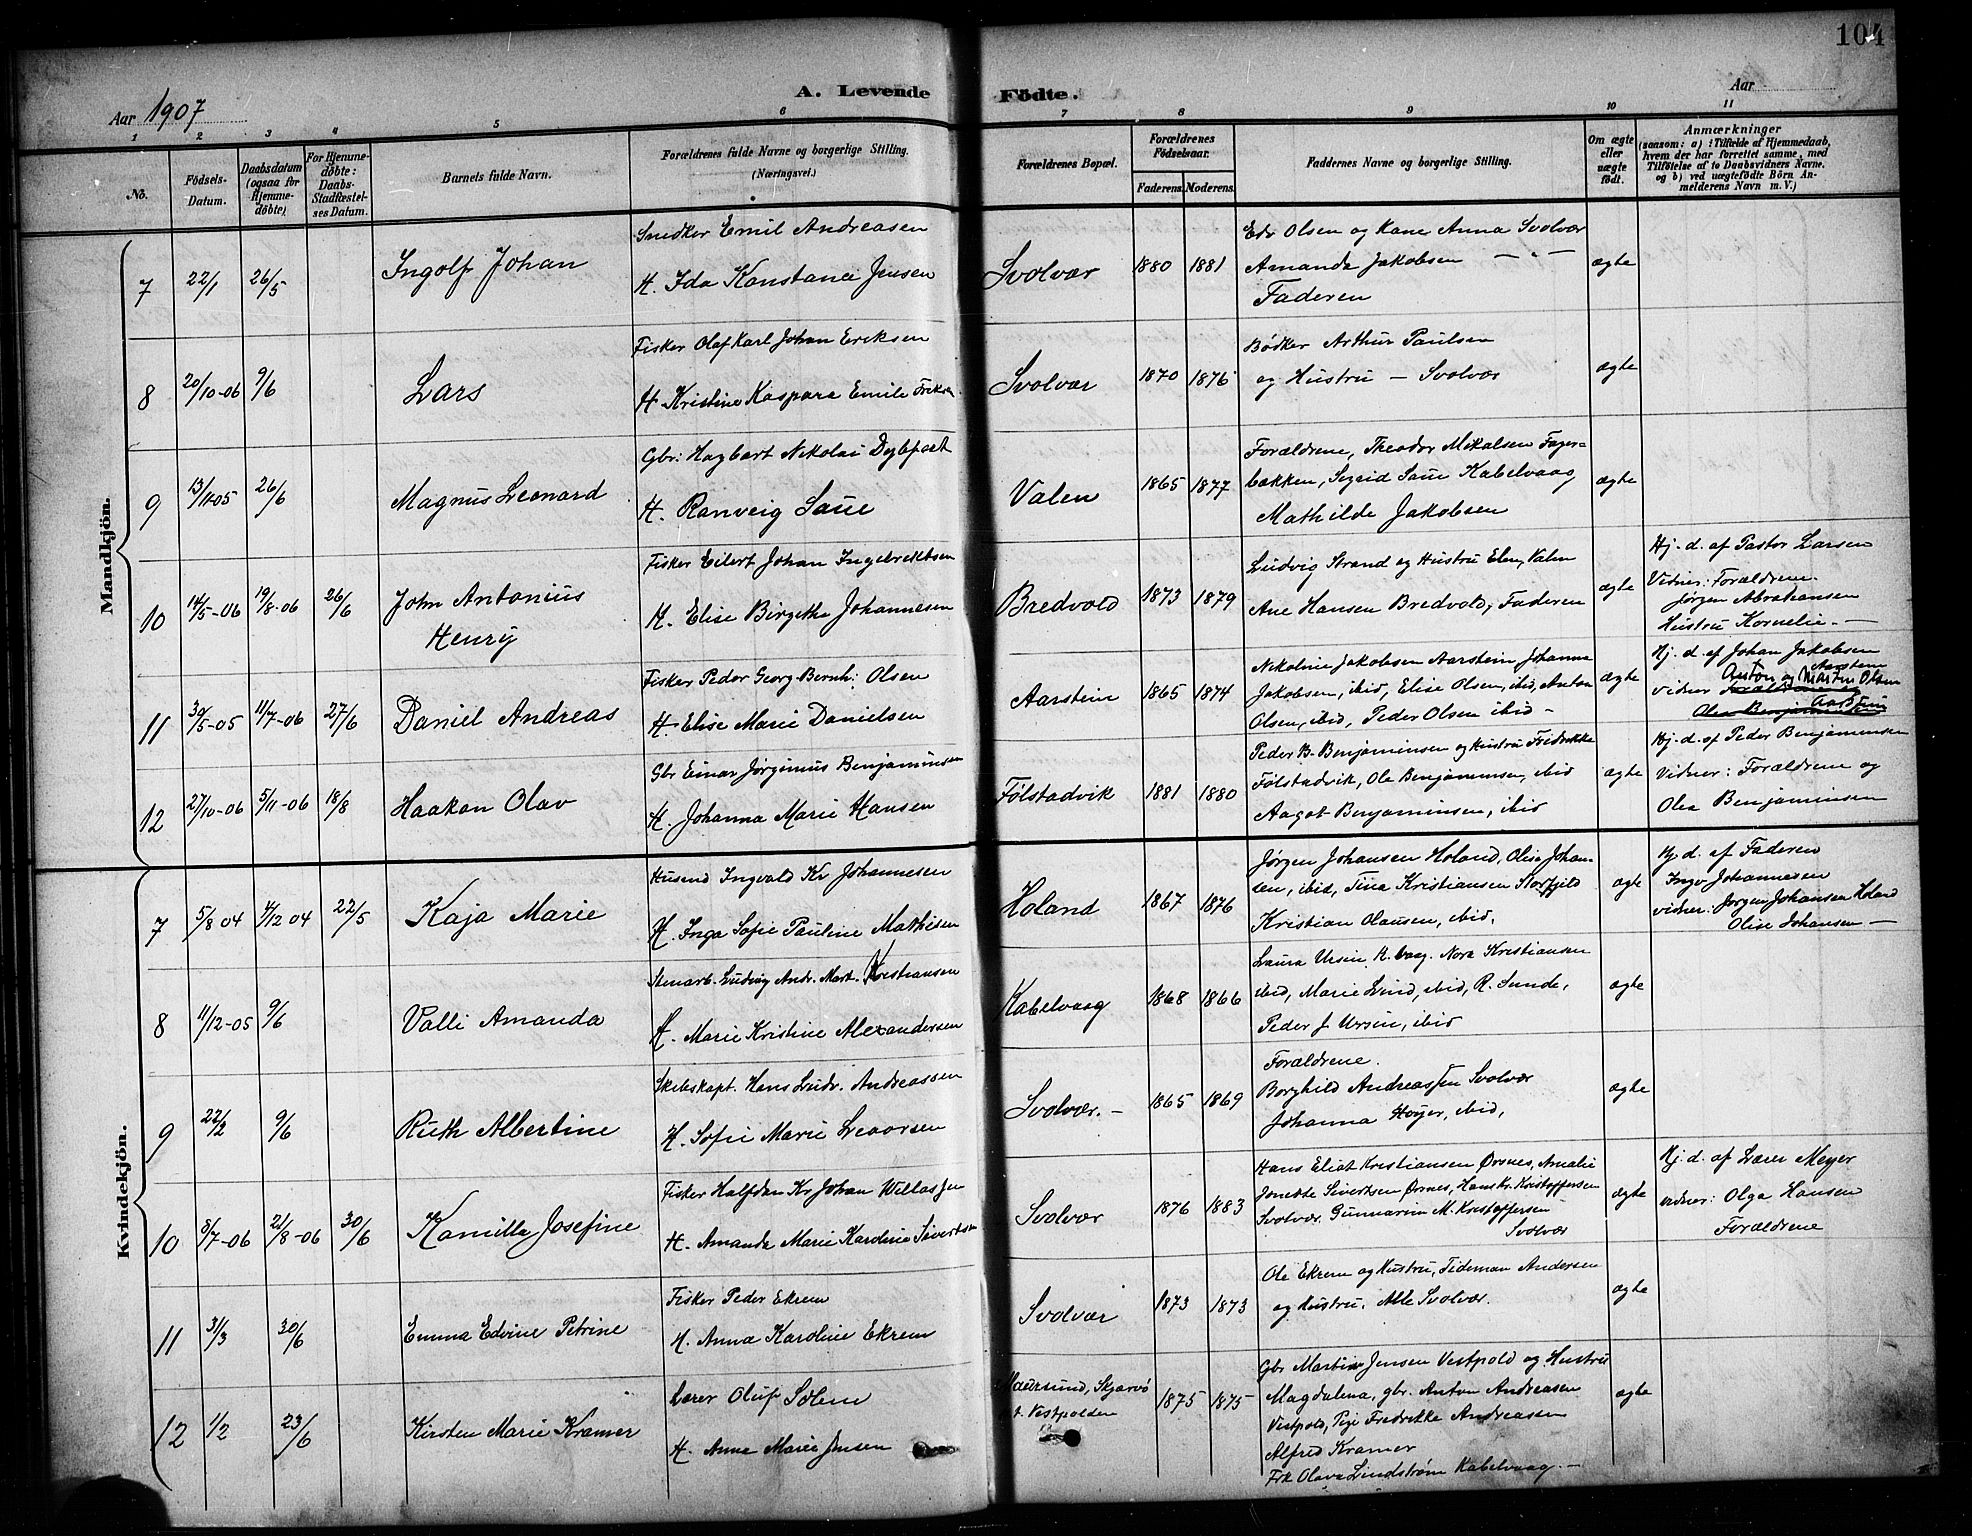 104
Aar 1907
A. Levende
Födte.
Aar
1 2 3 4 5 6 7 8 9 10 11
No.
Födsels-Datum.
Daabsdatum (ogsaa for Hjemmedöbte)
For Hjemmedöbte: Daabs-Stadfæstelses Datum.
Barnets fulde Navn.
Forældrenes fulde Navne og borgerlige Stilling. (Næringsvei.)
Forældrenes Bopæl.
Forældrenes Födselsaar.
Faderens. Moderens.
Faddernes Navne og borgerlige Stilling.
Om ægte eller uægte födt.
Anmærkninger
(saasom: a) i Tilfælde af Hjemmedaab, hvem der har forrettet samme, med Tilföielse af to Daabsvidners Navne, og b) ved uægtefödte Börn Anmelderens Navn m. V.)
Mandkjön.
7 22/1 26/5 Ingolf Johan
Snedker Emil Andreasen
H. Ida Konstanse Jensen
Svolvær 1880 1881
Edv Olsen og Kone Anna Svolvær
Amanda Jakobsen — " —
Faderen
ægte
8 20/10-06 9/6 Lars
Fisker Olaf Karl Johan Eriksen
H. Kristine Kaspara Emilie
Svolvær 1870 1876
Bödker Arthur Paulsen
og Hustru — Svolvær
ægte
9 13/11-05 26/6 Magnus Leonard
Gbr: Hagbart Nikolai Dybfæst
H. Ranveig Saue
Valen 1865 1877
Forældrene, Theodor Mikalsen Fager-
bakken, Sigrid Saue Kabelvaag
Mathilde Jakobsen
ægte
10 14/5-06 19/8-06 26/6 John Antonius
Henry
Fisker Eilert Johan Ingebrektsen
H. Elise Birgitte Johannesen
Bredvold 1873 1879
Ludvig Strand og Hustru Elen, Valen
Ane Hansen Bredvold, Faderen
ægte
Hj. d. af Pastor Larsen
Vidner: Forældrene.
Jörgen Abrahamsen
Hustru Kornelie. —
11 30/5-05 11/7-06 27/6 Daniel Andreas
Fisker Peder Georg Bernh: Olsen
H. Elise Marie Danielsen
Aarstein 1865 1874
Nikoline Jakobsen Aarstein, Johanna
Jakobsen, ibid, Elise Olsen, ibid, Anton
Olsen, ibid, Peder Olsen ibid -
ægte
Hj. d. af Johan Jakobsen
Aarstein
vidner Anton og Martin Olsen
Aarstein
12 27/10-06 5/11-06 18/8 Haakon Olav
Gbr Einar Jörginius Benjaminsen
H. Johanna Marie Hansen
Fölstadvik 1881 1880
Peder B. Benjaminsen og Hustru Fredrikke
Fölstadvik, Ole Benjaminsen, ibid
Aagot Benjaminsen, ibid
ægte
Hj. d. af Peder Benjaminsen
Vidner: Forældrene og
Olea Benjaminsen
Kvindekjön.
7 5/8 04 4/12 04 22/5 Kaja Marie
Husmd Ingvald Kr Johannesen
H. Inga Sofie Pauline Mathisen
Holand 1867 1876
Jörgen Johansen Holand, Olise Johan-
sen, ibid, Tina Kristiansen Storfjeld
Kristian Olausen, ibid,
ægte
Hj. d. af Faderen
Ingv Johannesen
vidner: Jörgen Johansen Holand
Olise Johansen —
8 11/12-05 9/6 Valli Amanda
Stenarb. Ludvig Andr. Mart. Kristiansen
H. Marie Kristine Alexandersen
Kabelvaag 1868 1866
Laura Ursin K.vaag. Nora Kristiansen
ibid, Marie Lind, ibid, R. Sunde,
Peder J. Ursin, ibid
ægte
9 22/2 9/6 Ruth Albertine
Skibskapt. Hans Ludv. Andreassen
H. Sofie Marie
Svolvær. - 1865 1869
Forældrene.
Borghild Andreassen Svolvær
Johanna Höyer, ibid,
ægte
10 8/7-06 21/8-06 30/6 Kamilla Josefine
Fisker Halfdan Kr Johan Willassen
H. Amanda Marie Karoline Sivertsen
Svolvær 1876 1883
Hans Eliat Kristiansen Örsnes, Amalie
Jonette Sivertsen Örsnes, Hans Kr. Kristoffersen
Svolvær. Gunnarine M. Kristoffersen
Svolvær
ægte
Hj. d. af Lærer Meyer
vidner: Olga Hansen
Forældrene
11 31/3 30/6 Emma Edvine Petrine
Fisker Peder Ekrem
H. Anna Karoline Ekrem
Svolvær 1873 1873
Ole Ekrem og Hustru, Tideman Andersen
og Hustru. Alle Svolvær.
ægte
12 1/2 23/6 Kirsten Marie Kramer
Lærer Oluf Solem
H. Anna Marie Jensen
Maursund, Skjærvö
t. Vestpolden
1875 1875
Gbr Martin Jensen Vestpold og Hustru
Magdalena, gbr. Anton Andreasen
Vestpold, Pige Fredrikke Andreassen
Alfred Kramer
Frk Olava Lindström Kabelvaag. —
ægte